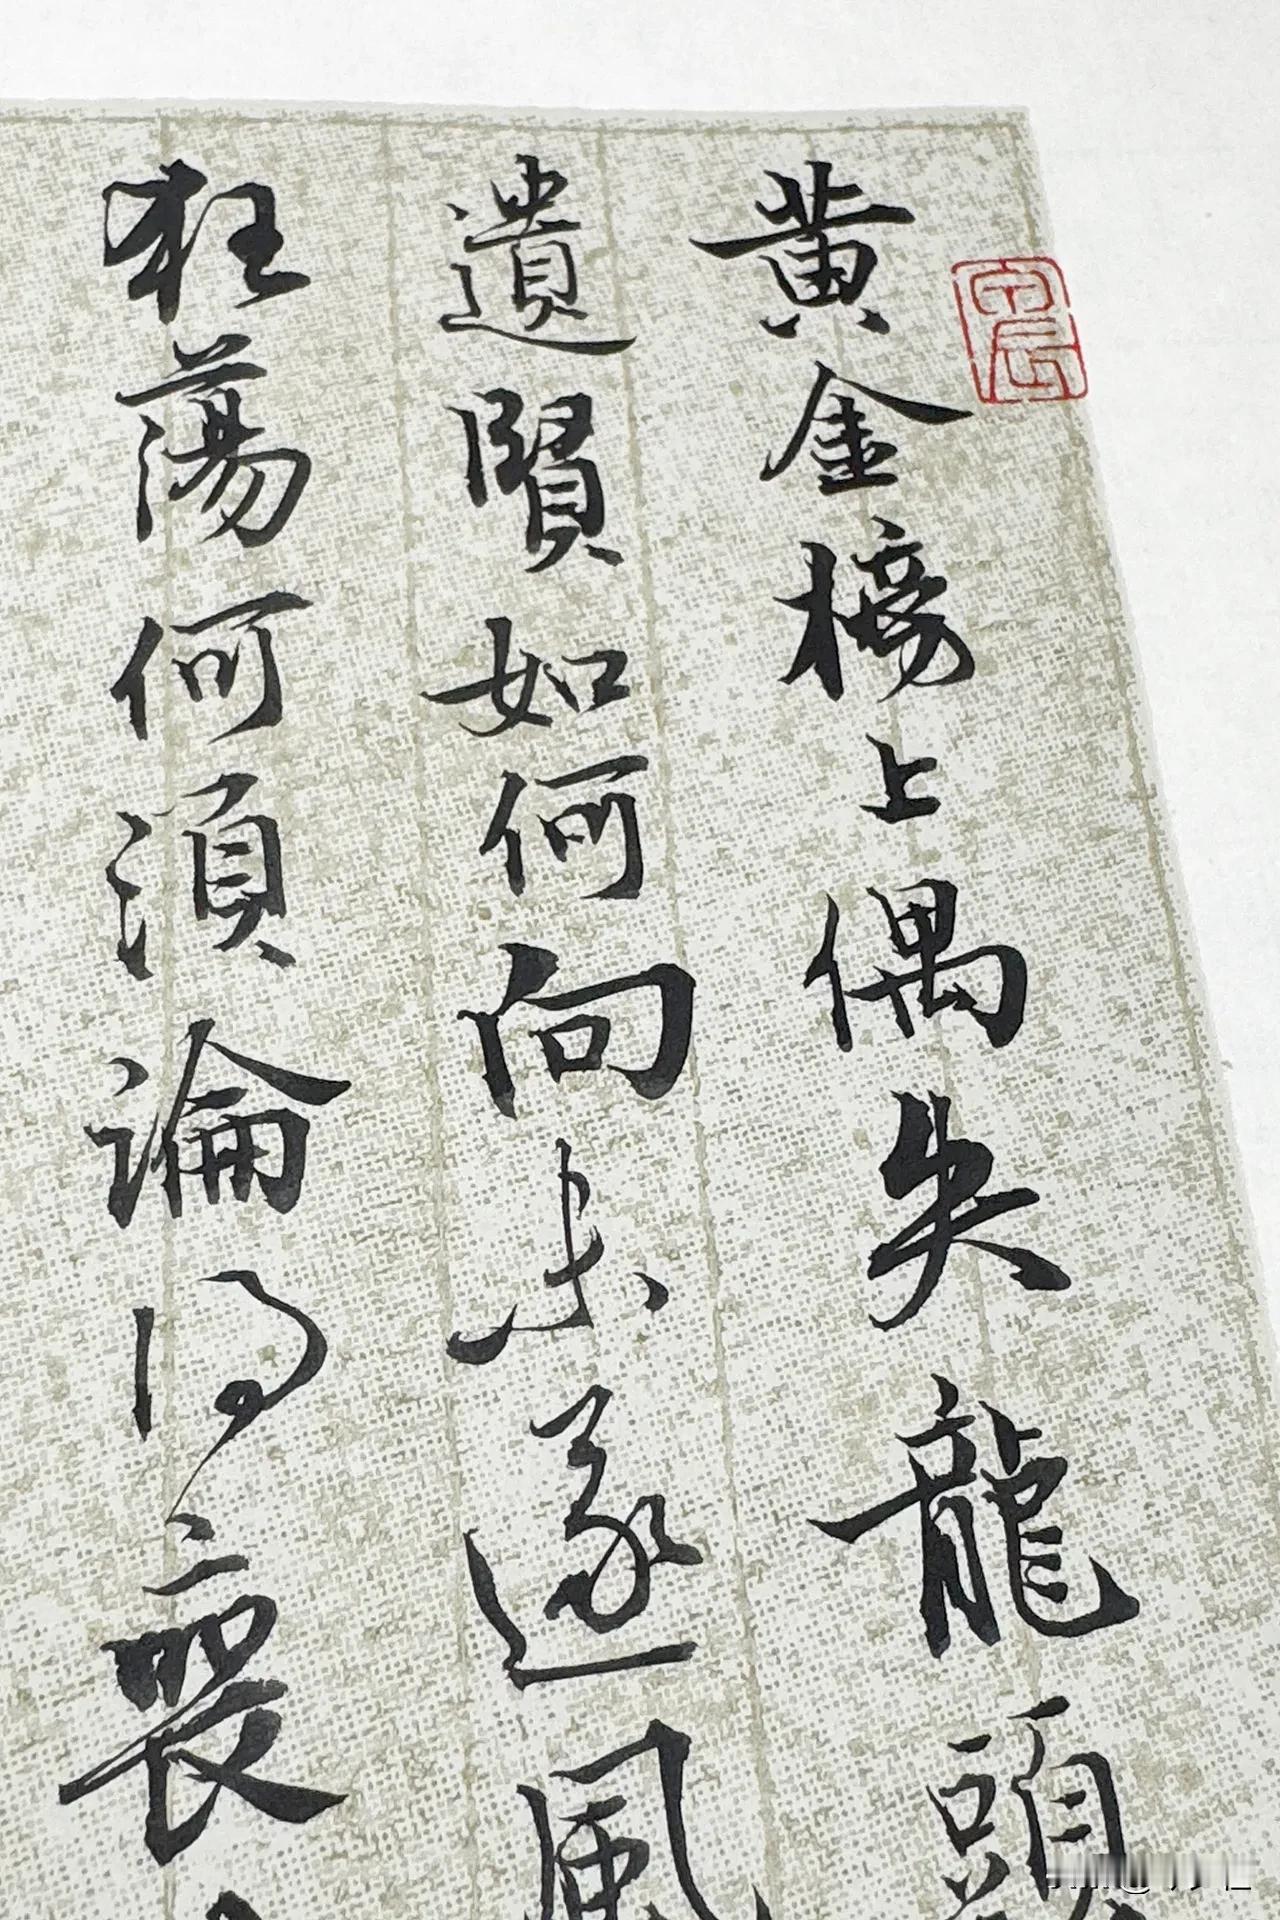 黄金榜上偶失龍頭
遺賢如何向未遂風
狂蕩何須論得喪